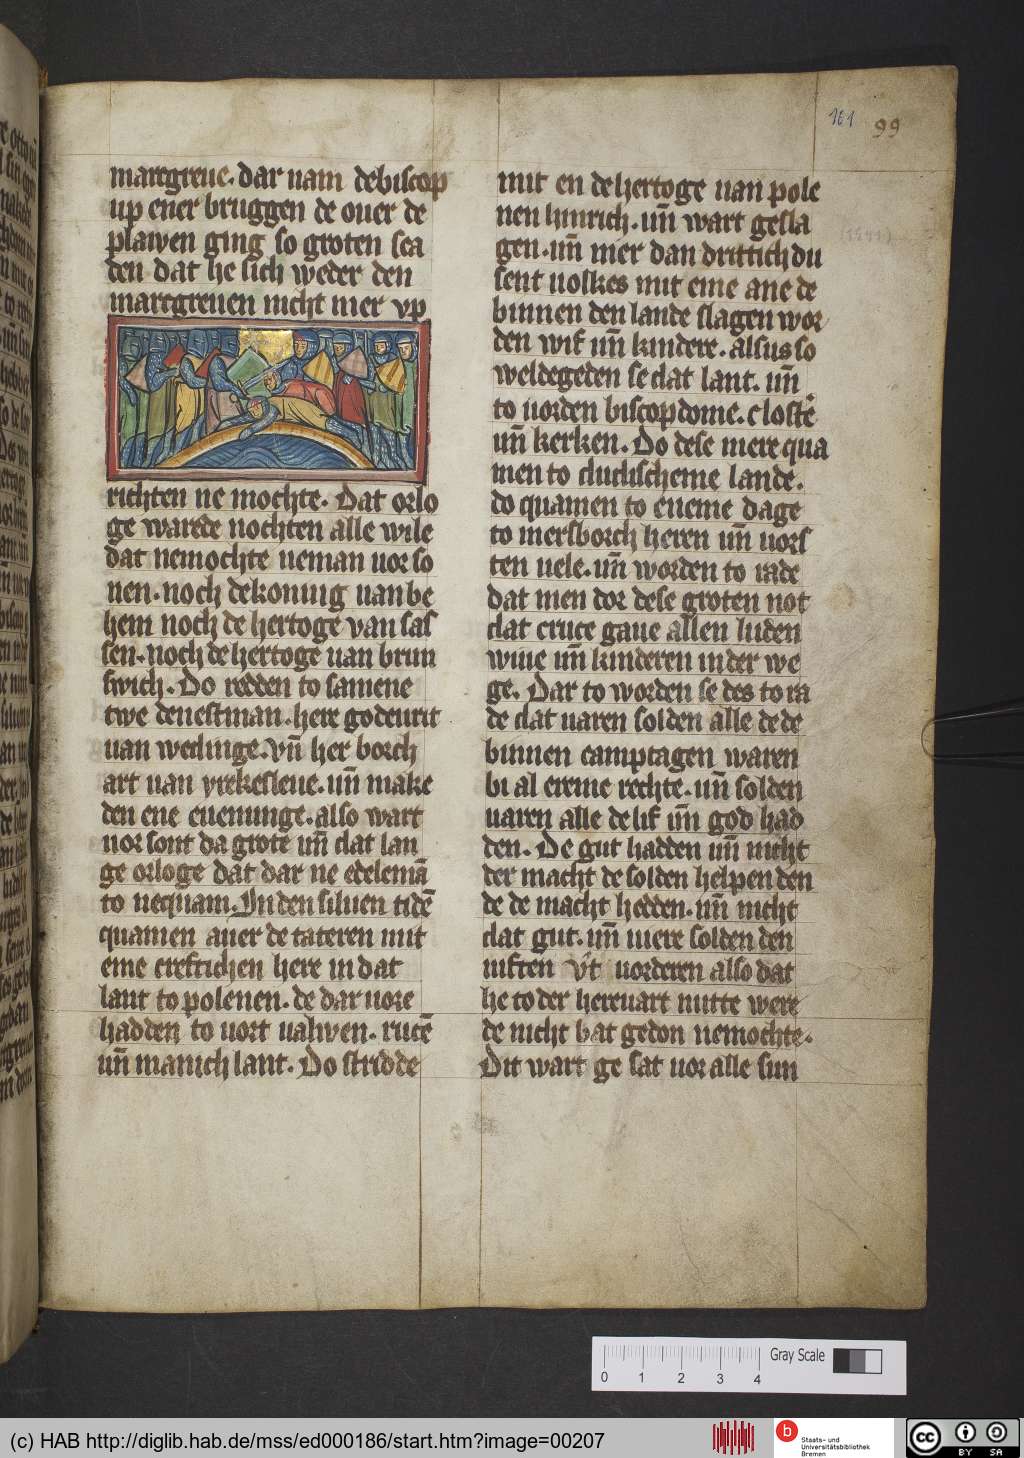 161 99
maregreue. dar nam de biscop
up ener bruggen de ouer de
plawen ging so groten sca
den dat he sich weder den
maregreuen nicht mer vp
richten ne mochte. Dat orlo
ge warede nochten alle wile
dat nemochte neman uor so
nen. noch de konuig uan be
hem noch de hertoge van sas
sen. noch de hertoge uan brun
swich. Do redden to samene
twe denestman. here godeurit
uan wedinge. vn̄ her borch
art uan yrekesleue. un̄ make
den ene eueninge. also wart
uor sont da grote un̄ dat lan
ge orloge dat dar ne edelemā
to nequam. In den siluen tidē
quamen auer de tateren mit
eme creftichen here in dat
lant to polenen. de dar uore
hadden to uort ualwen. rucē
un̄ manich lant. Do stridde
mit en de hertoge uan pole
nen hinrich. un̄ wart gesla
gen. un̄ mer dan drittich du
sent uolkes mit eme ane de
binnen den lande slagen wor
den wif un̄ kindere. alsus so
weldegeden se dat lant. un̄
to uorden biscopdome. clostē
un̄ kerken. Do dese mere qua
men to dudischeme lande.
do quamen to eneme dage
to mersborch heren un̄ uors
ten uele. un̄ worden to rade
dat men dor dese groten not
dat cruce gaue allen luden
wiue un̄ kinderen in der we
ge. Dar to worden se des to ra
de dat uaren solden alle de de
binnen camptagen waren
bi al ereme rechte. un̄ solden
uaren alle de lif un̄ god had
den. De gut hadden un̄ nicht
der macht de solden helpen den
de de macht hedden. un̄ nicht
dat gut. un̄ iuere solden den
uiften vt uorderen also dat
he to der hereuart nutte were
de nicht bat gedon nemochte.
Dit wart ge sat uor alle sun
Gray Scale
0 1 2 3 4
(c) HAB http://diglib.hab.de/mss/ed000186/start.htm?image=00207
b
Staats- und
Universitätsbibliothek
Bremen
cc
BY SA